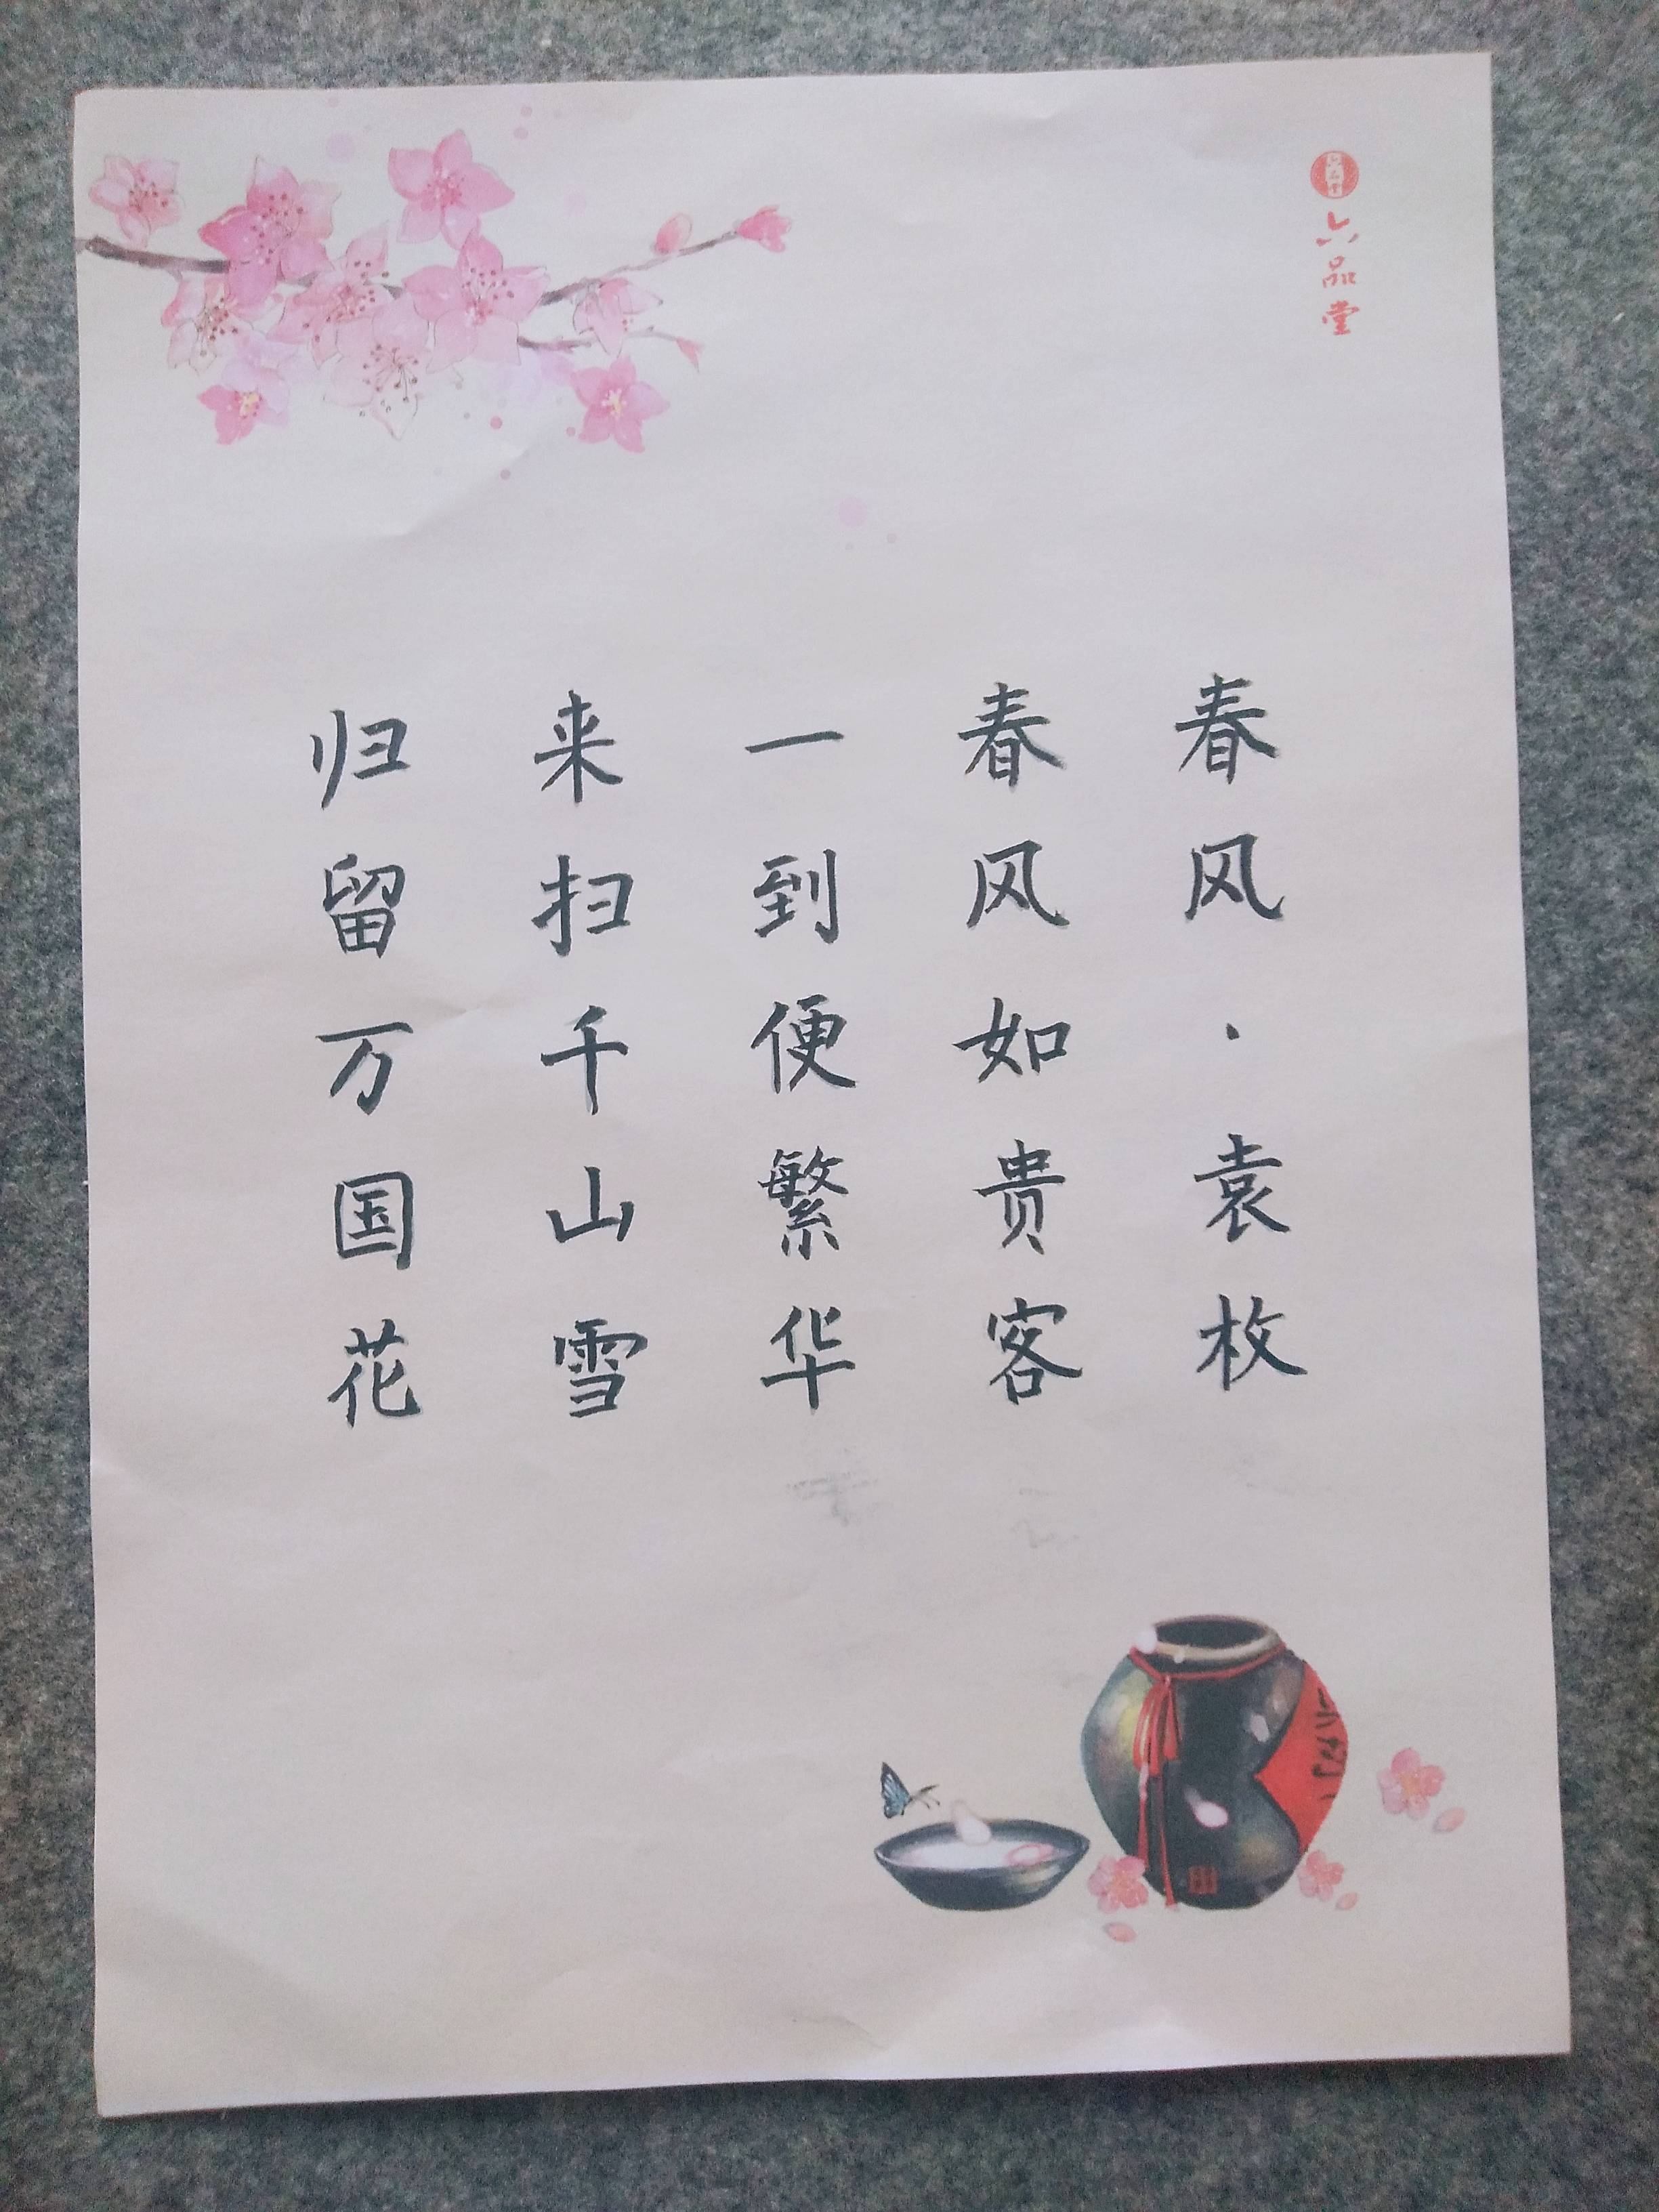 六品堂
春风·袁枚
春风如贵客
一到便繁华
来扫千山雪
归留万国花